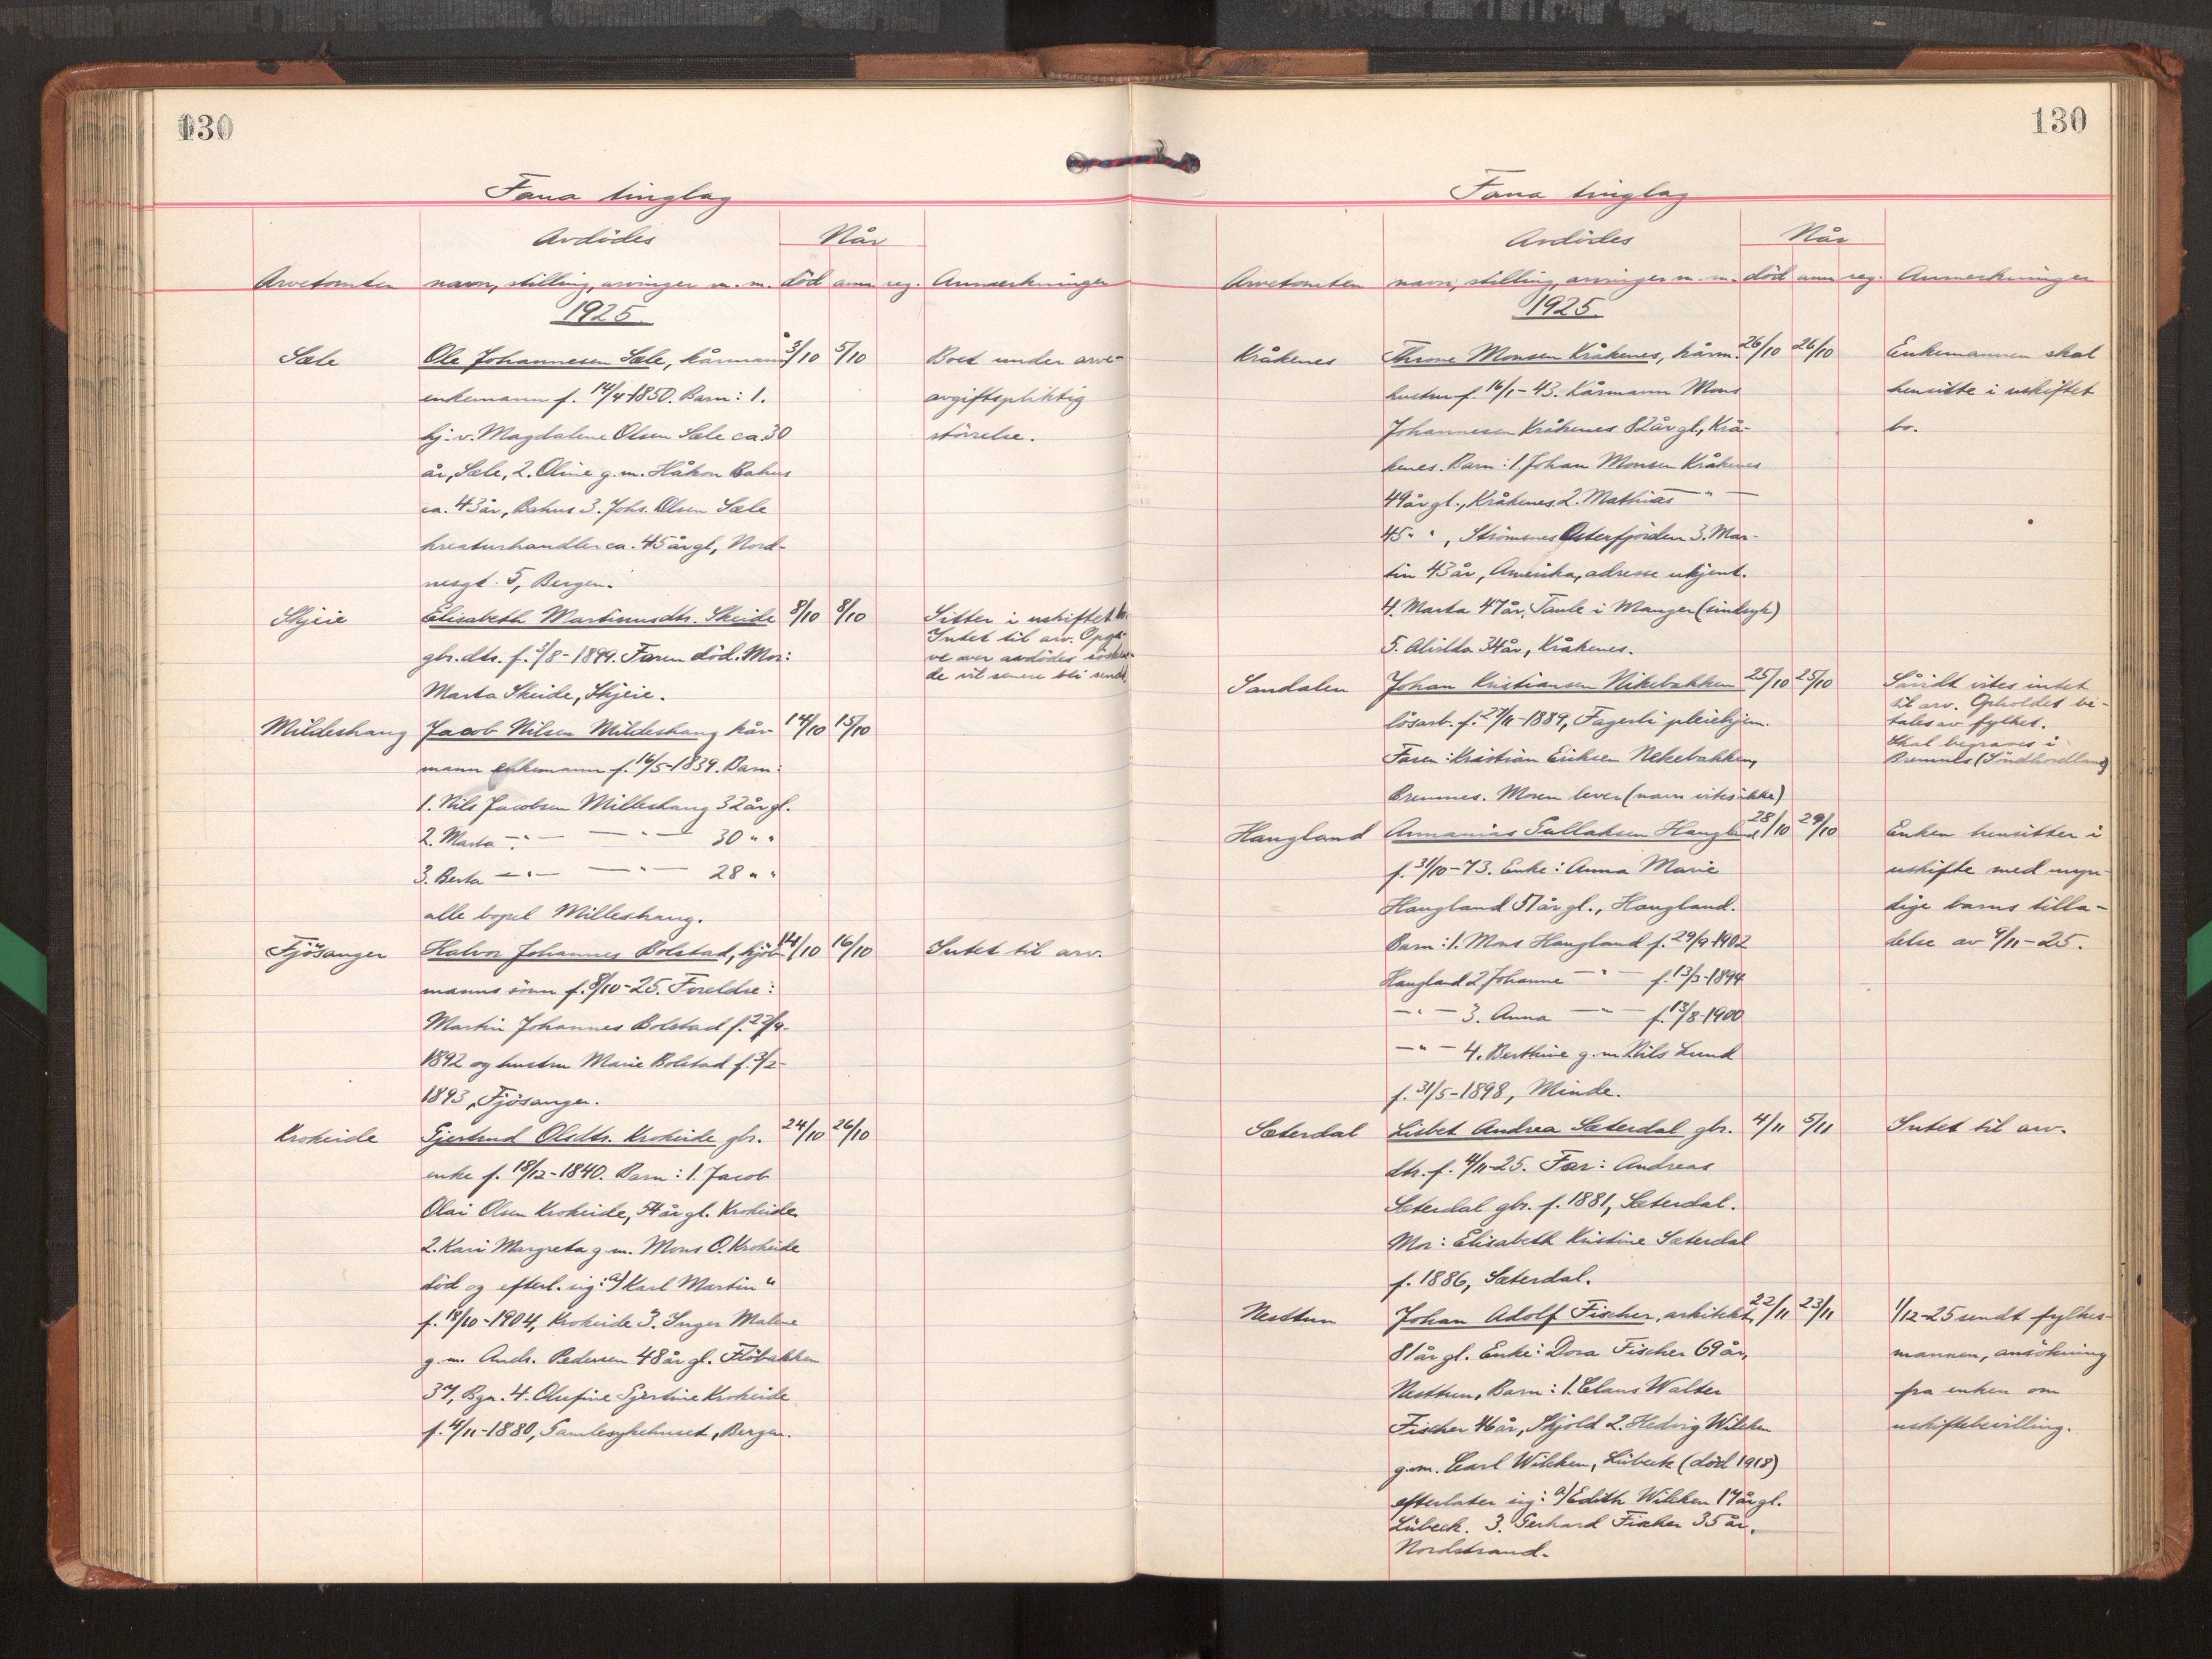 130
Fana tinglag
Avdödes
Når
Arvetomten navn, stilling, arvinger m. m. död anm reg. Anmerkninger
1925
Sæle Ole Johannesen Sæle, kårmann 3/10 5/10 Boet under arve-
enkemann f. 14/4-1850. Barn: 1. avgiftspliktig
hj. v. Magdalene Olsen Sæle ca. 30 störrelse.
år, Sæle, 2. Oline g. m. Håkon Bahus
ca. 43 år, Bahus 3. Johs. Olsen Sæle
kreaturhandler ca. 45 år gl, Nord-
nesgt. 5, Bergen.
Skjeie Elisabeth Martinusdtr. Skeide 8/10 8/10 Sitter i uskiftet bo.
Intet til arv. Opgå-
gbr. dtr. f. 3/8-1899. Faren död. Mor: ve over avdödes sösken-
de vil senere bli sendt.
Marta Skeide, Skjeie.
Mildeshaug Jacob Nilsen Mildeshaug kår- 14/10 15/10
mann enkemann f. 16/5-1839. Barn:
1. Nils Jacobsen Milleshaug 32 år gl.
2. Marta -"- -"- 30 " "
3. Berta -"- -"- 28 " "
alle bopel Milleshaug.
Fjösanger Halvor Johannes Bolstad, kjöb- 14/10 16/10 Intet til arv.
manns sönn f. 8/10-25. Foreldre:
Martin Johannes Bolstad f. 22/9-
1892 og hustru Marie Bolstad f. 3/2-
1893, Fjösanger.
Krokeide Gjertrud Olsdtr. Krokeide gbr. 24/10 26/10
enke f. 18/12-1840. Barn: 1. Jacob
Olai Olsen Krokeide, 54 år gl. Krokeide
2. Kari Margreta g. m. Mons O. Krokeide
död og efterl. sig: a) Karl Martin "
f. 18/10-1904, Krokeide 3. Inger Malene
g. m. Ands. Pedersen 48 år gl. Flöbakken
37, Bgn. 4. Olufine Gjertine Krokeide
f. 4/11-1880, Samlesykehuset, Bergen.
130
Fana tinglag
Avdödes
Når
Arvetomten navn, stilling, arvinger m. m. död anm reg. Anmerkninger
1925
Kråkenes Throne Monsen Kråkenes, kårm. 26/10 26/10 Enkemannen skal
hustru f. 16/1-43. Kårmann Mons hensitte i uskiftet
Johannesen Kråkenes 82 år gl, Krå- bo.
kenes. Barn: 1. Johan Monsen Kråkenes
49 år gl., Kråkenes 2. Mathias -"-
45 " " , Strömsnes Osterfjorden 3. Mar-
tin 43 år, Amerika, adresse ukjent.
4. Marta 47 år, Taule i Manger (sindsyk)
5. Alvilda 34 år, Kråkenes.
Sandalen Johan Kristiansen Nikebakken 25/10 25/10 Såvidt vites intet
til arv. Opholdet be-
lösarb. f. 27/11-1889, Fagerli pleiehjem. tales av fylket.
Skal begraves i
Faren: Kristian Eriksen Nekebakken, Bremnes (Söndhordland)
Bremnes. Moren lever (navn vites ikke)
Haugland Annanias Tullaksen Haugland 28/10 29/10 Enken hensitter i
f. 31/10-73. Enke: Anna Marie uskifte med myn-
Haugland 51 år gl., Haugland. dige barns tilla-
Barn: 1. Mons Haugland f. 29/9-1902 delse av 9/11-25.
Haugland 2 Johanne -"- f. 13/3-1894
-"- 3. Anna -"- f. 13/8-1900
-"- 4. Berthine g. m. Nils Lund
f. 31/5-1898, Minde.
Sæterdal Lisbet Andrea Sæterdal gbr. 4/11 5/11 Intet til arv.
dtr. f. 4/11-25. Far: Andreas
Sæterdal gbr. f. 1881, Sæterdal.
Mor: Elisabeth Kristine Sæterdal
f. 1886, Sæterdal.
Nesttun Johan Adolf Fischer, arkitekt 22/11 23/11 1/12-25 sendt fylkes-
81 år gl. Enke: Dora Fischer 69 år, mannen, ansökning
Nesttun, Barn: 1. Claus Walter fra enken om
Fischer 46 år, Skjold 2. Hedvig Wilcken uskiftebevilling.
g. m. Carl Wilcken, Lübeck (död 1918)
efterlater sig: a) Edith Wilcken 17 år gl.
Lübeck. 3. Gerhard Fischer 35 år,
Nordstrand.